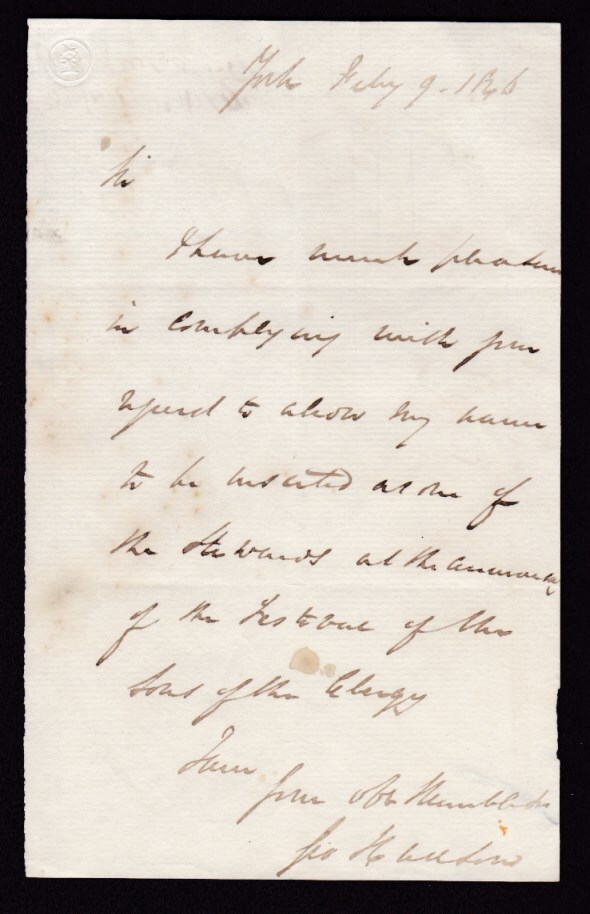 York Feby 9. 1846
Sir
I have much pleasure
in complying with your
request to allow my name
to be inserted as one of
the Stewards at the anniversary
of the Festival of the
Sons of the Clergy
I am
your obt humble St
Geo Hudson